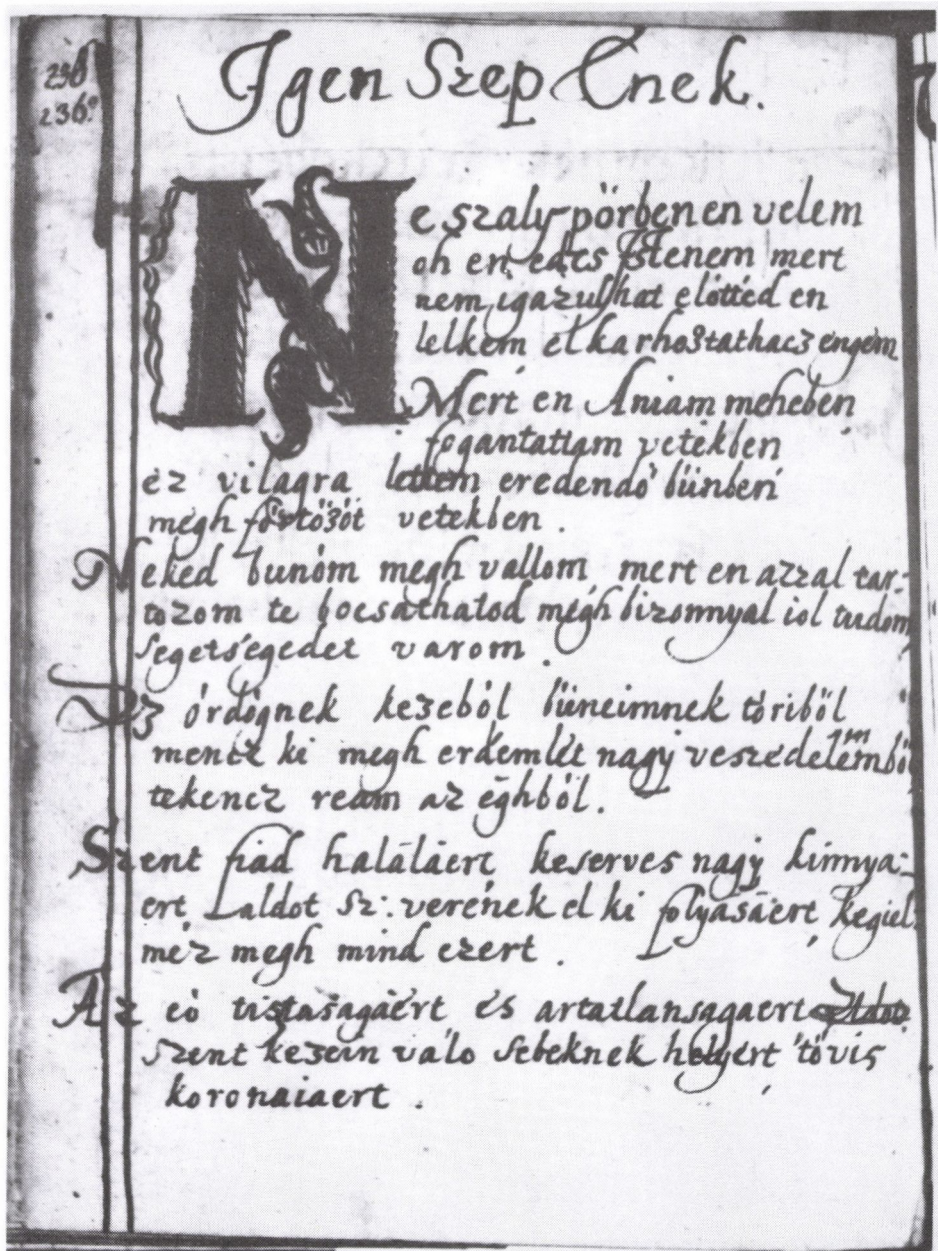 238
236.
Igen Szep Enek.
Ne szaly pörben en velem
oh en edes Istenem mert
nem igazulhat elötted en
lelkem el karhoztathacz engem
Mert en Aniam meheben
fogantattam vetekben
ez vilagra lettem eredendö bünben
megh förtözöt vetekben.
Neked bunöm megh vallom mert en azzal tar-
tozom te bocsathatod megh bizonnyal iol tudom
segetsegedet varom.
Az ördögnek kezeböl büneimnek töriböl
mencz ki megh erdemlet nagy veszedelmemböl
tekencz ream az eghböl.
Szent fiad halálaert keserves nagy kinnya-
ert aldot Sz: verenek el ki folyásáert, kegiel
mez megh mind ezert.
Az eö tistaságáért és artatlansagaert
szent kezeinválo sebeknek helyért tövis
koronaiaert.